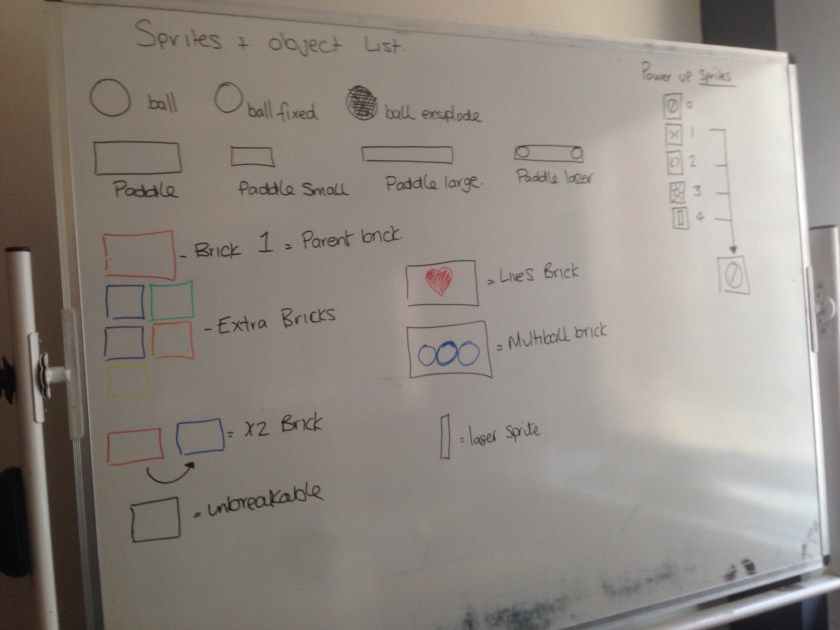 Sprites + object List.
Power up Sprites
ball
ball fixed
ball exsplode
0
1
2
3
4
Paddle
Paddle Small
Paddle large.
Paddle lazer
- Brick 1 = Parent brick
= Lives Brick
- Extra Bricks
= Multiball brick
= x2 Brick
= laser sprite
= unbreakable